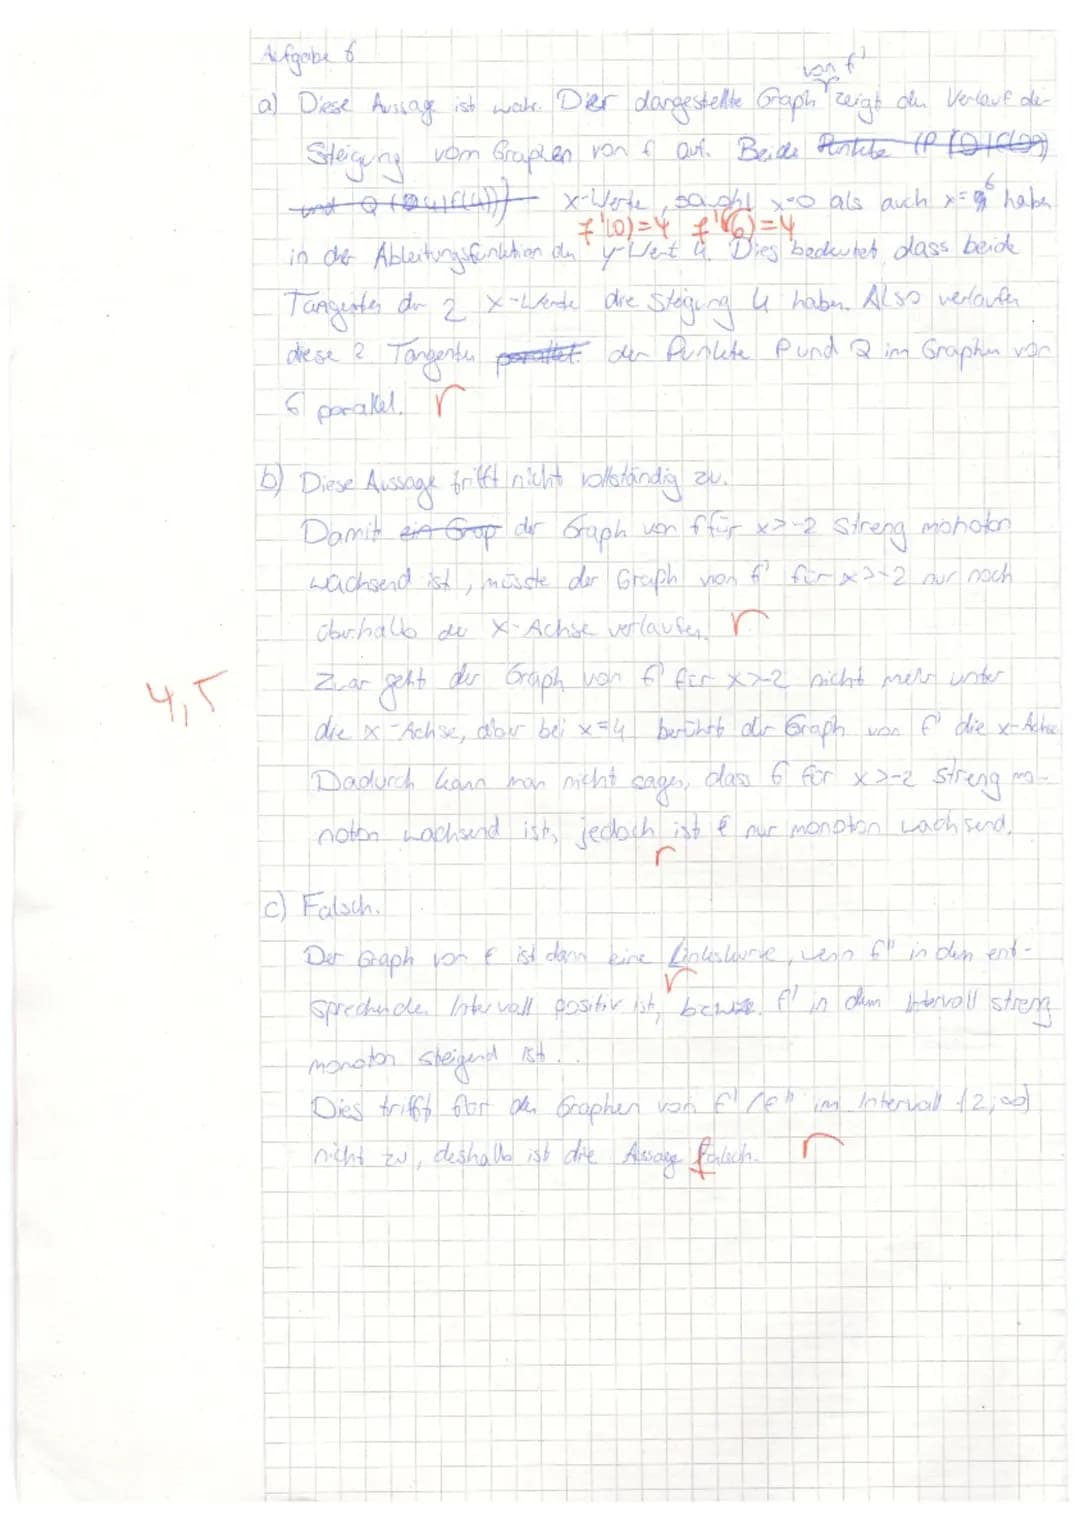 Aufgabe 6
von f'
a) Diese Aussage ist wahr. Der dargestellte Graph zeigt den Verlauf der
Steigung vom Graphen von f auf. Beide Punkte (P (0|f(0))
und Q (4|f(4))) x-Werte, sowohl x=0 als auch x=6 haben
f'(0)=4 f'(6)=4
in der Ableitungsfunktion den y-Wert 4. Dies bedeutet, dass beide
Tangenten der 2 x-Werte die Steigung 4 haben. Also verlaufen
diese 2 Tangenten parallel der Punkte P und Q im Graphen von
f parallel.
b) Diese Aussage trifft nicht vollständig zu.
Damit ein Grap der Graph von f für x>-2 streng monoton
wachsend ist, müsste der Graph von f' für x>-2 nur noch
oberhalb der x-Achse verlaufen.
Zwar geht der Graph von f' für x>-2 nicht mehr unter
4,5
die x-Achse, aber bei x=4 berührt der Graph von f' die x-Achse.
Dadurch kann man nicht sagen, dass f für x>-2 streng mo-
noton wachsend ist, jedoch ist f nur monoton wachsend.
c) Falsch.
Der Graph von f ist dann eine Linkskurve, wenn f'' in dem ent-
sprechenden Intervall positiv ist, bzw. f' in dem Intervall streng
monoton steigend ist.
Dies trifft für den Graphen von f'/f'' im Intervall (2;∞)
nicht zu, deshalb ist die Aussage falsch.